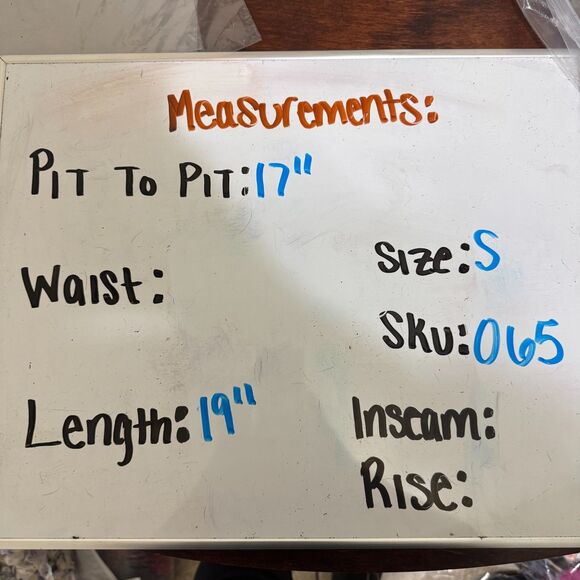 Measurements:
PIT TO PIT: 17"
Waist:
Size: S
Sku: 065
Length: 19"
Inseam:
Rise: